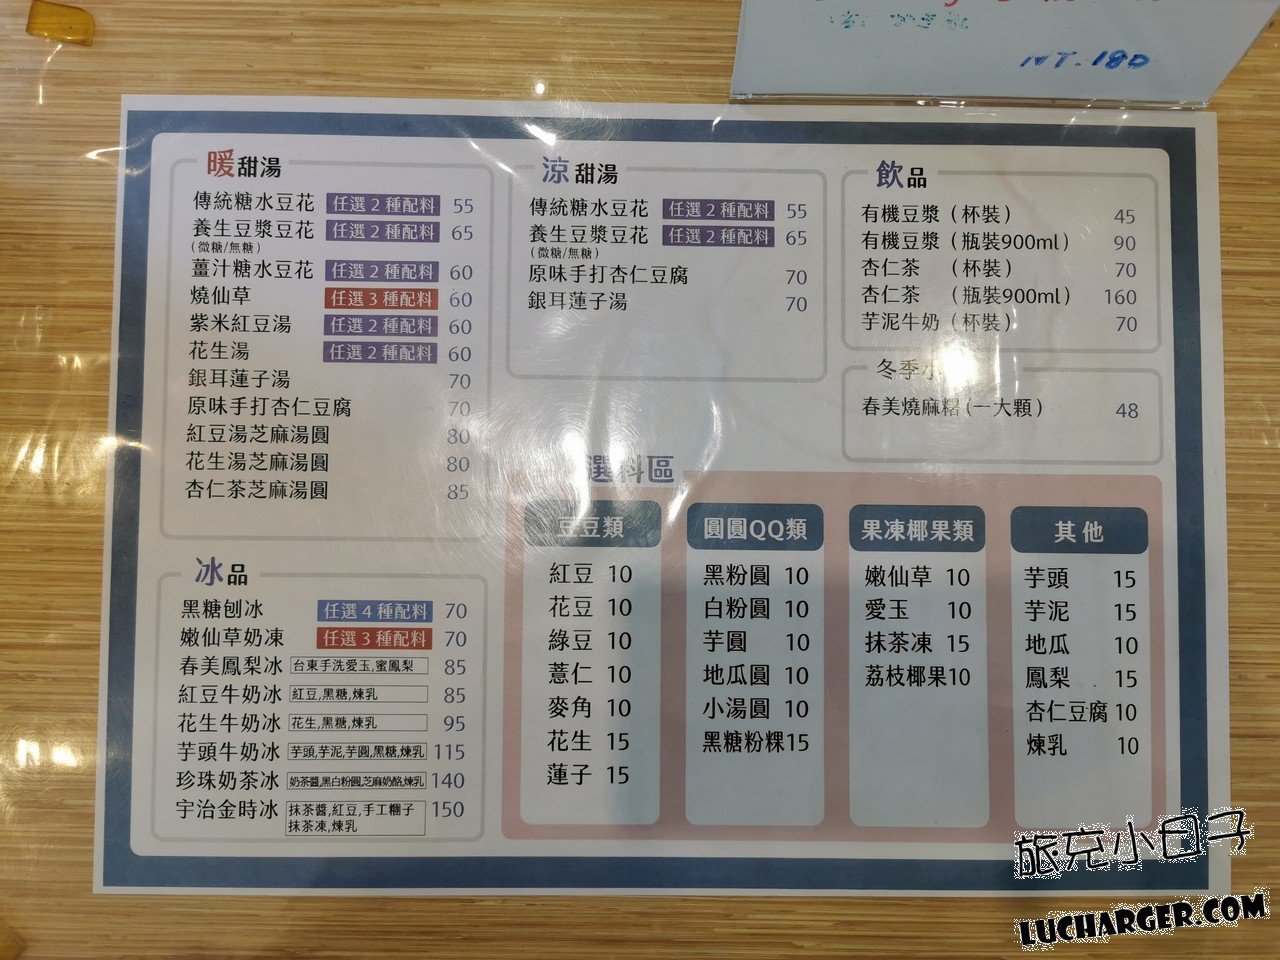 NT.180
暖甜湯
傳統糖水豆花 任選2種配料 55
養生豆漿豆花 任選2種配料 65
(微糖/無糖)
薑汁糖水豆花 任選2種配料 60
燒仙草 任選3種配料 60
紫米紅豆湯 任選2種配料 60
花生湯 任選2種配料 60
銀耳蓮子湯 70
原味手打杏仁豆腐 70
紅豆湯芝麻湯圓 80
花生湯芝麻湯圓 80
杏仁茶芝麻湯圓 85
冰品
黑糖刨冰 任選4種配料 70
嫩仙草奶凍 任選3種配料 70
春美鳳梨冰 台東手洗愛玉,蜜鳳梨 85
紅豆牛奶冰 紅豆,黑糖,煉乳 85
花生牛奶冰 花生,黑糖,煉乳 95
芋頭牛奶冰 芋頭,芋泥,芋圓,黑糖,煉乳 115
珍珠奶茶冰 奶茶醬,黑白粉圓,芝麻奶酪,煉乳 140
宇治金時冰 抹茶醬,紅豆,手工糰子 150
抹茶凍,煉乳
涼甜湯
傳統糖水豆花 任選2種配料 55
養生豆漿豆花 任選2種配料 65
(微糖/無糖)
原味手打杏仁豆腐 70
銀耳蓮子湯 70
飲品
有機豆漿(杯裝) 45
有機豆漿(瓶裝900ml) 90
杏仁茶 (杯裝) 70
杏仁茶 (瓶裝900ml) 160
芋泥牛奶(杯裝) 70
冬季小
春美燒麻糬(一大顆) 48
選料區
豆豆類
紅豆 10
花豆 10
綠豆 10
薏仁 10
麥角 10
花生 15
蓮子 15
圓圓QQ類
黑粉圓 10
白粉圓 10
芋圓 10
地瓜圓 10
小湯圓 10
黑糖粉粿15
果凍椰果類
嫩仙草 10
愛玉 10
抹茶凍 15
荔枝椰果10
其他
芋頭 15
芋泥 15
地瓜 10
鳳梨 15
杏仁豆腐 10
煉乳 10
旅充小日子
LUCHARGER.COM